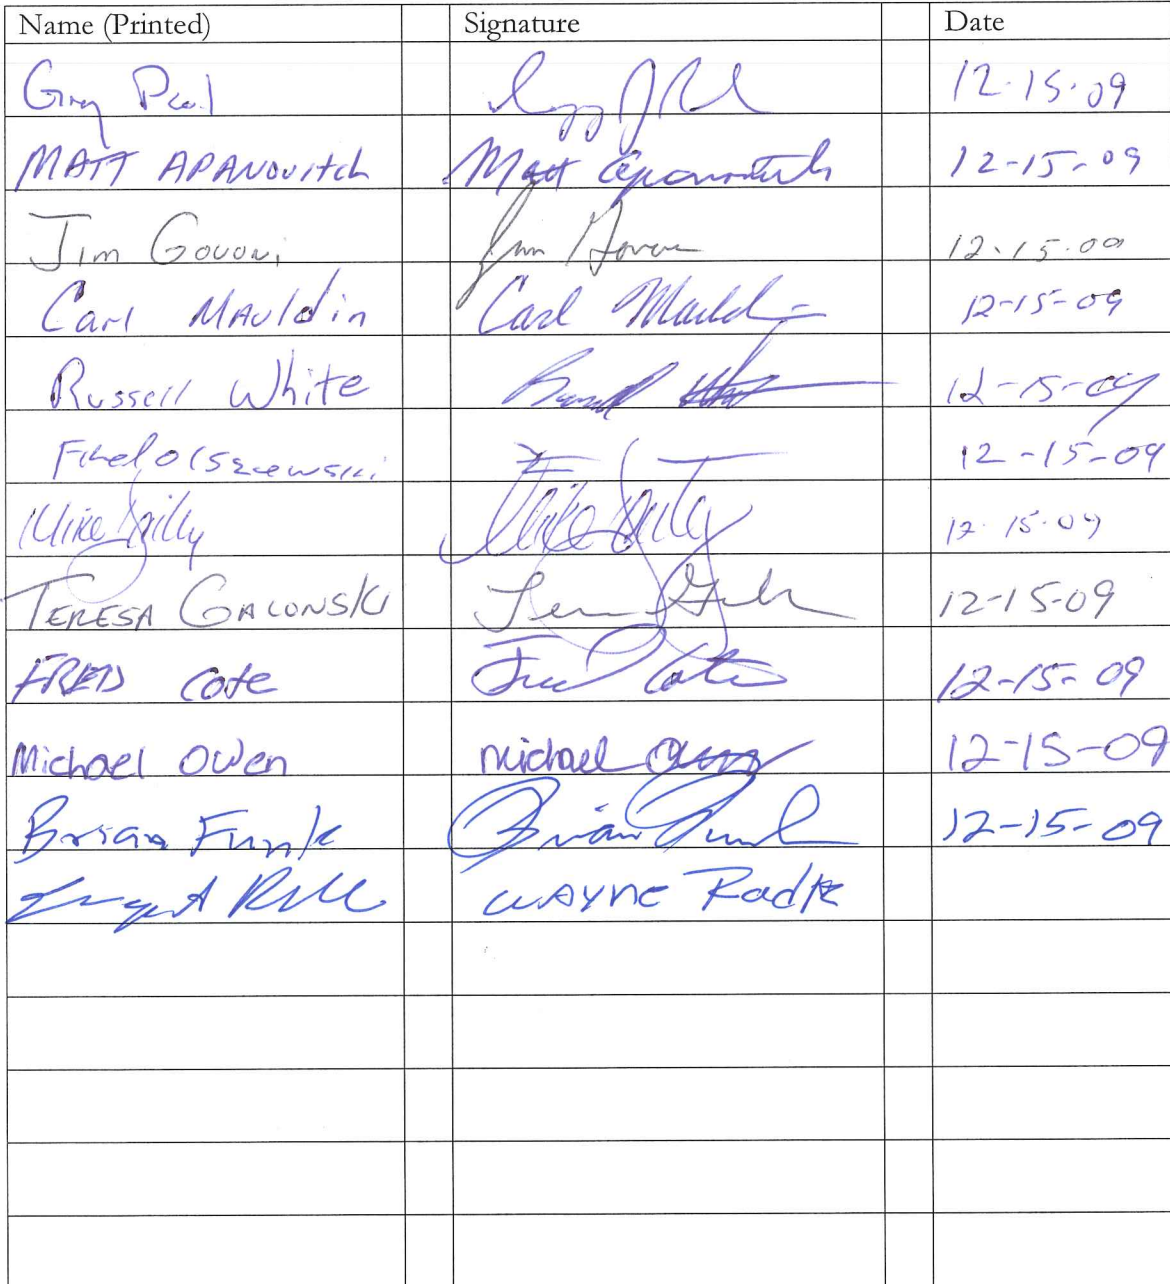 Name (Printed) Signature Date
Greg Paul 12-15-09
MATT APANOVITCH Matt Apanovitch 12-15-09
Jim Govoni Jim Govoni 12.15.09
Carl MAuldin Carl Mauldin 12-15-09
Russell White Russell White 12-15-09
Olszewski 12-15-09
Mike Mike 12.15.09
TERESA GACONSKI 12-15-09
FRED Cote Fred Cote 12-15-09
Michael Owen Michael Owen 12-15-09
Brian Funk Brian Funk 12-15-09
WAYNE Radke